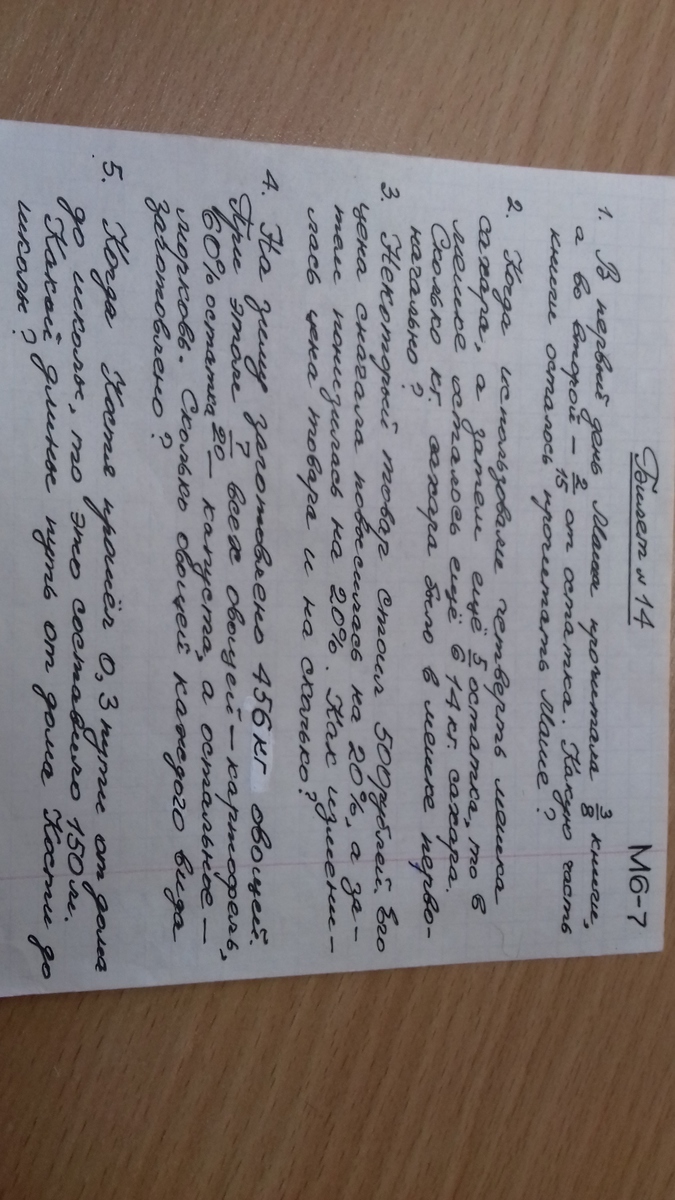 М6-7
Билет № 14
1. В первый день Маша прочитала 3/8 книги,
а во второй – 2/15 от остатка. Какую часть
книги осталось прочитать Маше?
2. Когда использовали четверть мешка
сахара, а затем ещё 5/6 остатка, то в
мешке осталось ещё 14 кг. сахара.
Сколько кг. сахара было в мешке перво-
начально?
3. Некоторый товар стоил 500 рублей. Его
цена сначала повысилась на 20%, а за-
тем понизилась на 20%. Как измени-
лась цена товара и на сколько?
4. На зиму заготовлено 456 кг овощей.
При этом 7/20 всех овощей – картофель,
60% остатка – капуста, а остальное –
морковь. Сколько овощей каждого вида
заготовлено?
5. Когда Костя прошёл 0,3 пути от дома
до школы, то это составило 150 м.
Какой длины путь от дома Кости до
школы?